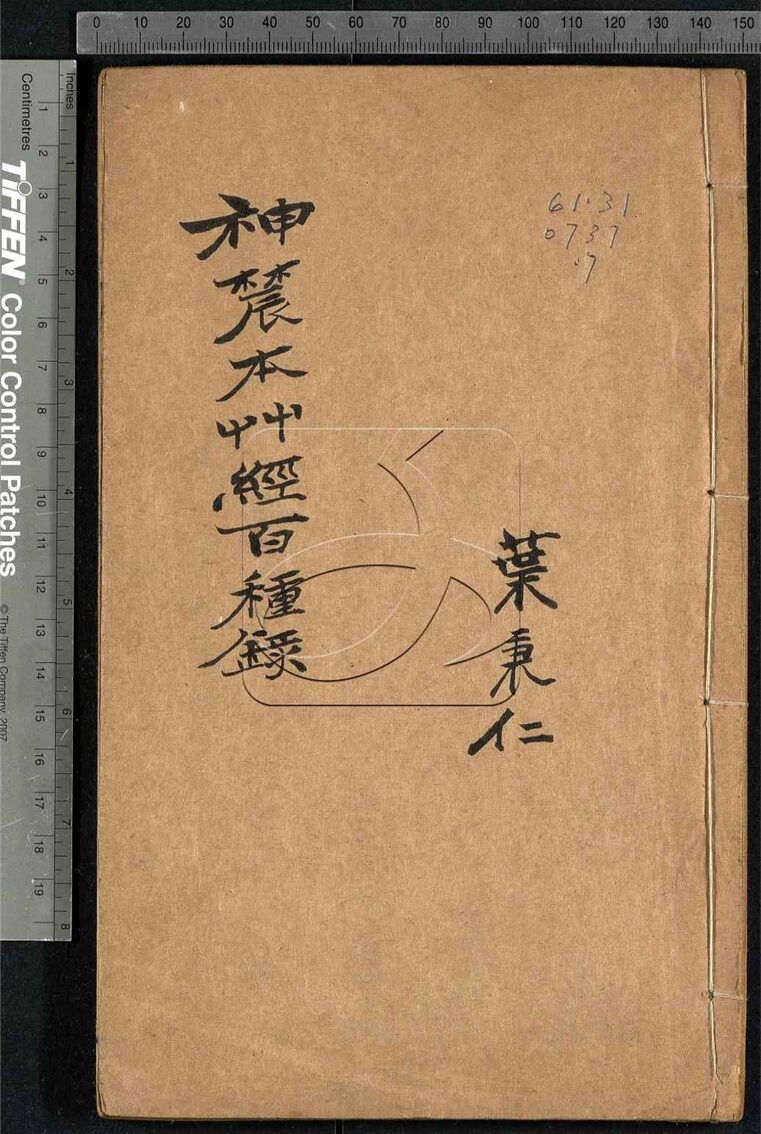 0 10 20 30 40 50 60 70 80 90 100 110 120 130 140 150
Inches
1 2 3 4 5 6 7 8
Centimetres
1 2 3 4 5 6 7 8 9 10 11 12 13 14 15 16 17 18 19
TIFFEN Color Control Patches
© The Tiffen Company, 2007
61·31
0737
·7
葉秉仁
神蓐本艸經百種錄